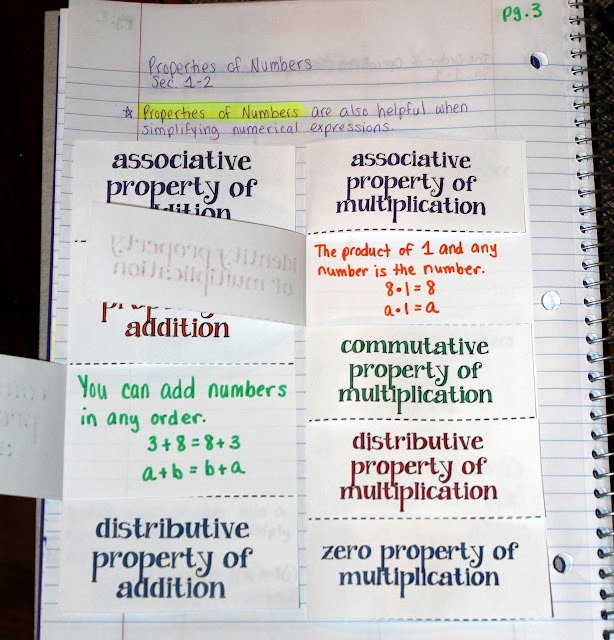 pg. 3
Properties of Numbers
Sec. 1-2
☆ Properties of Numbers are also helpful when
simplifying numerical expressions.
associative
property of
addition
identity property
of multiplication
addition
You can add numbers
in any order.
3+8=8+3
a+b=b+a
distributive
property of
addition
associative
property of
multiplication
The product of 1 and any
number is the number.
8•1=8
a•1=a
commutative
property of
multiplication
distributive
property of
multiplication
zero property of
multiplication